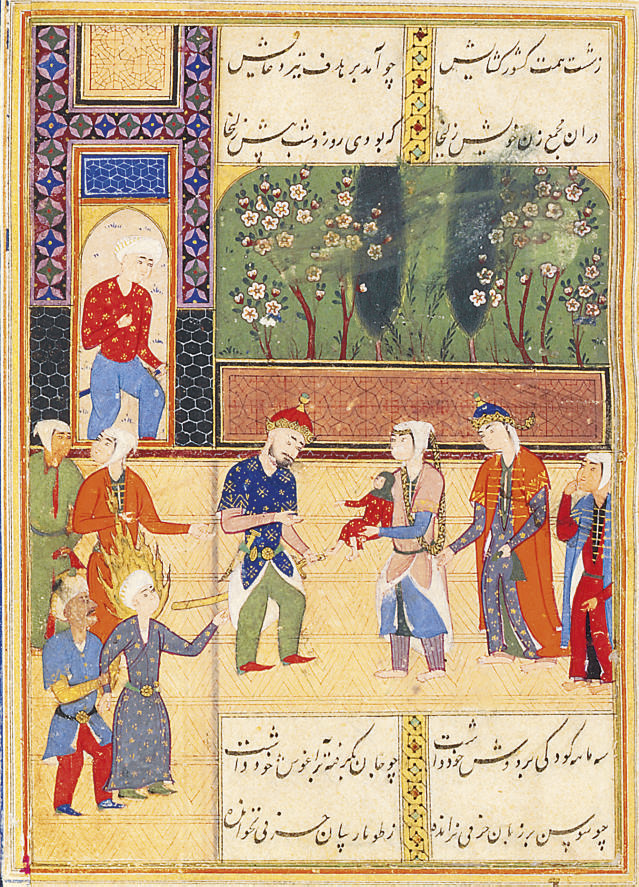 ز شست همت کشور کشایش چو آمد بر هدف تیر دعایش
در ان مجمع زن خویش زلیخا که بودی روز و شب پیش زلیخا
سه ماهه کودکی بر دوش خود داشت چو جان بگرفته در آغوش خود داشت
چو سوسن بر زبان حرفی نرانده ز طومار بیان حرفی نخوانده